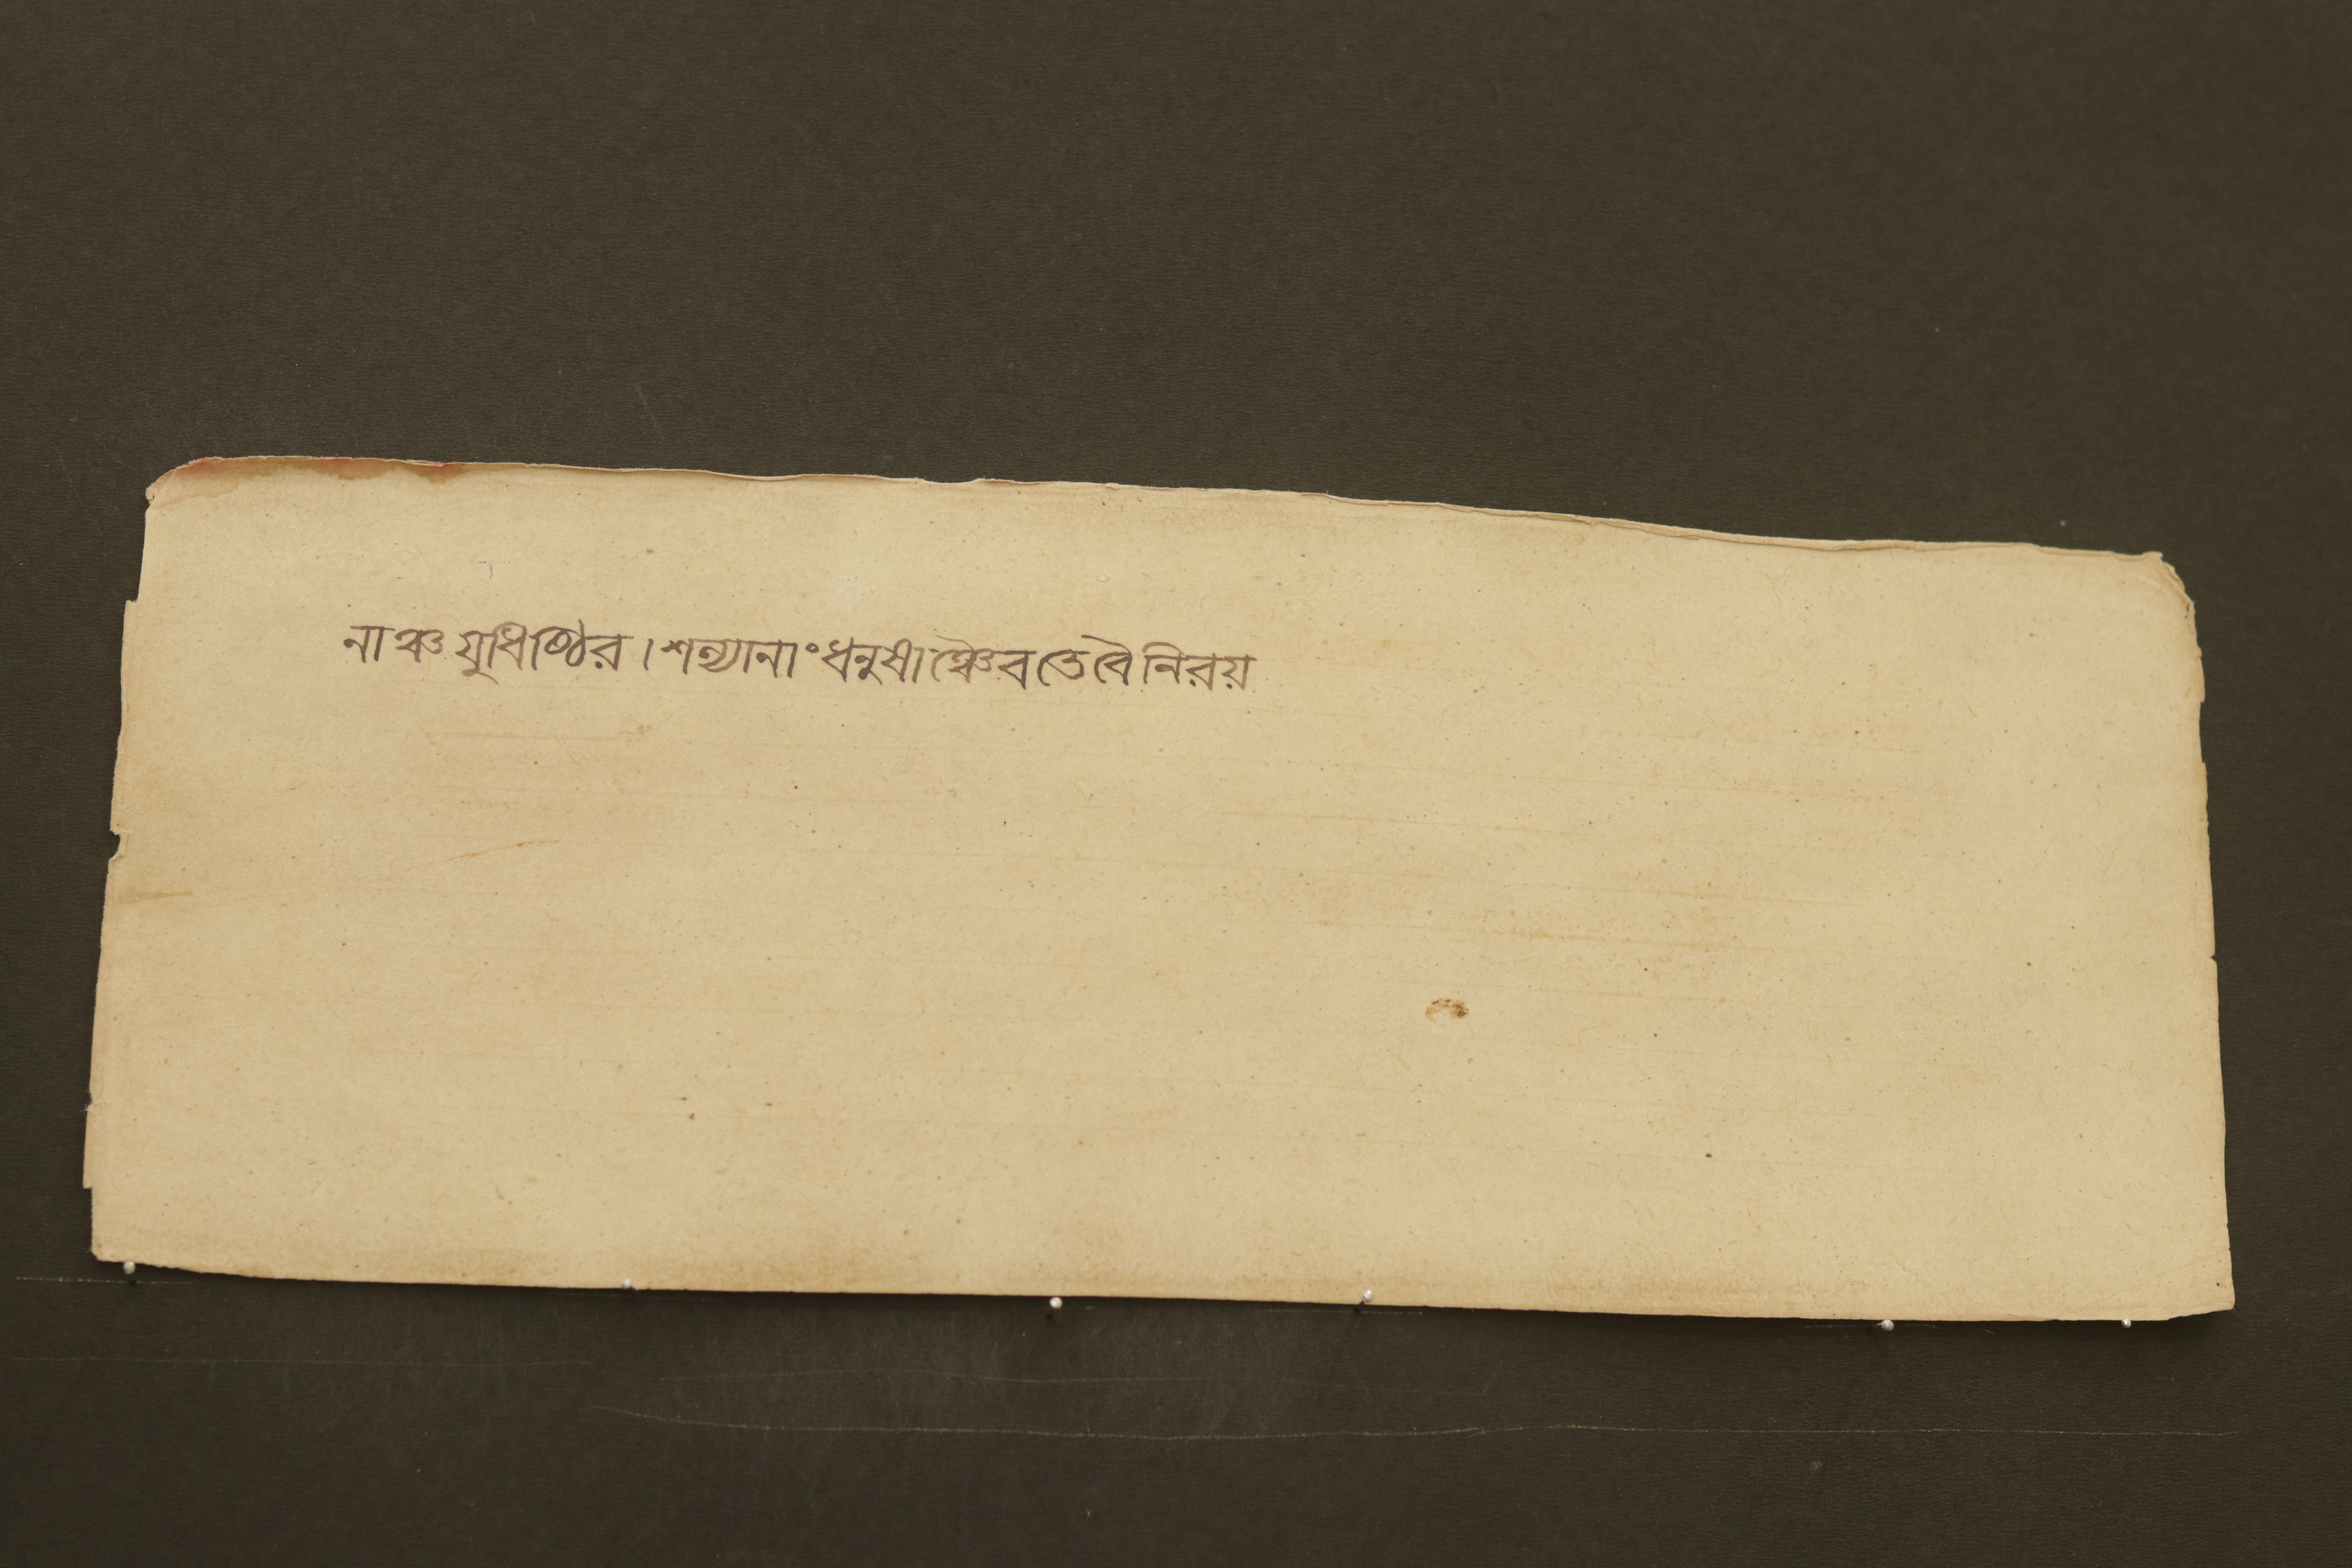 নাঞ্চ যুধিষ্ঠির। শল্যানাং ধনুষাঞ্চৈব তে বৈ নিরয়